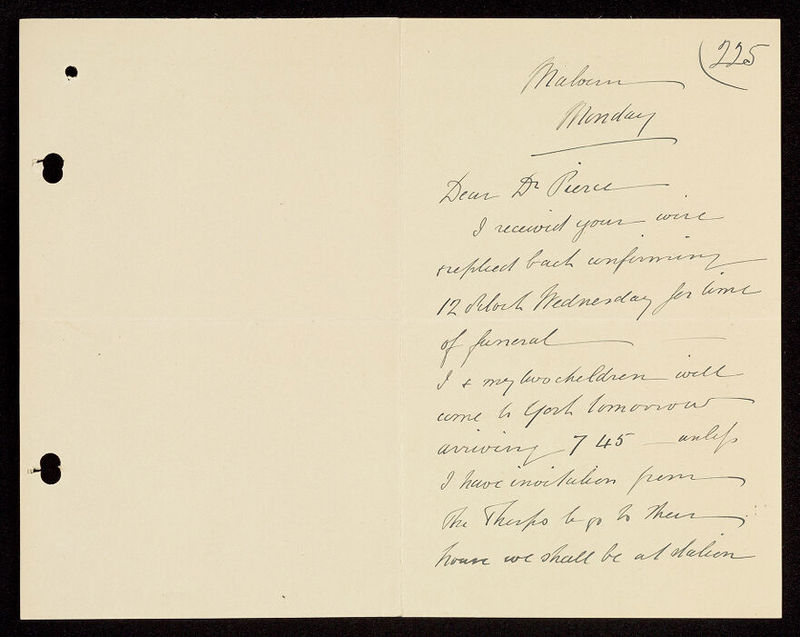 (225
Malvern
Monday
Dear Dr Pierce
I received your wire
& replied back confirming
12 oclock Wednesday for time
of funeral
I & my two children will
come to York tomorrow
arriving 7 45 unless
I have invitation from
The Thorps to go to their
house we shall be at station